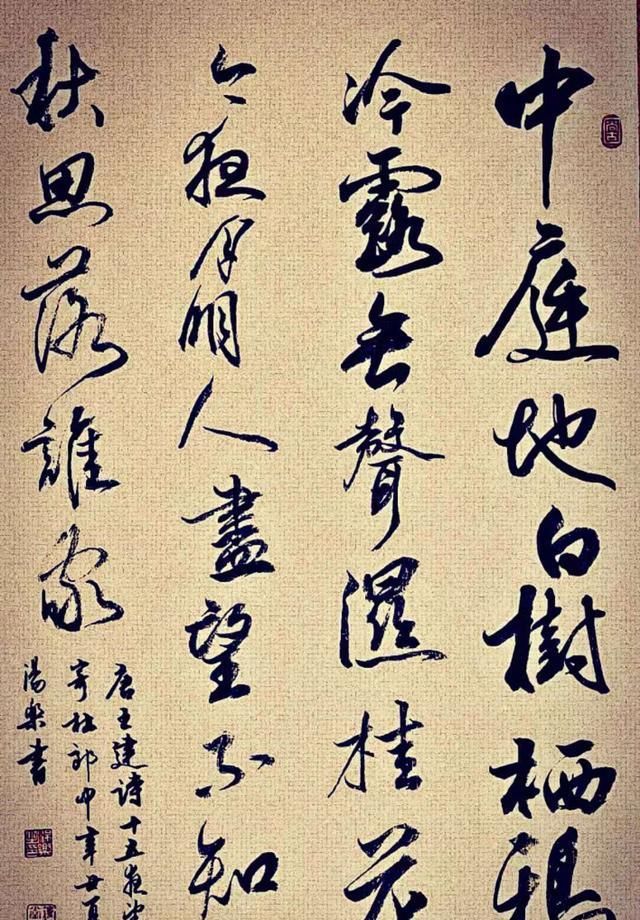 中庭地白樹栖鴉
冷露無聲濕桂花
今夜月明人盡望不知
秋思落誰家
唐王建詩十五夜望
寄杜郎中辛丑
書